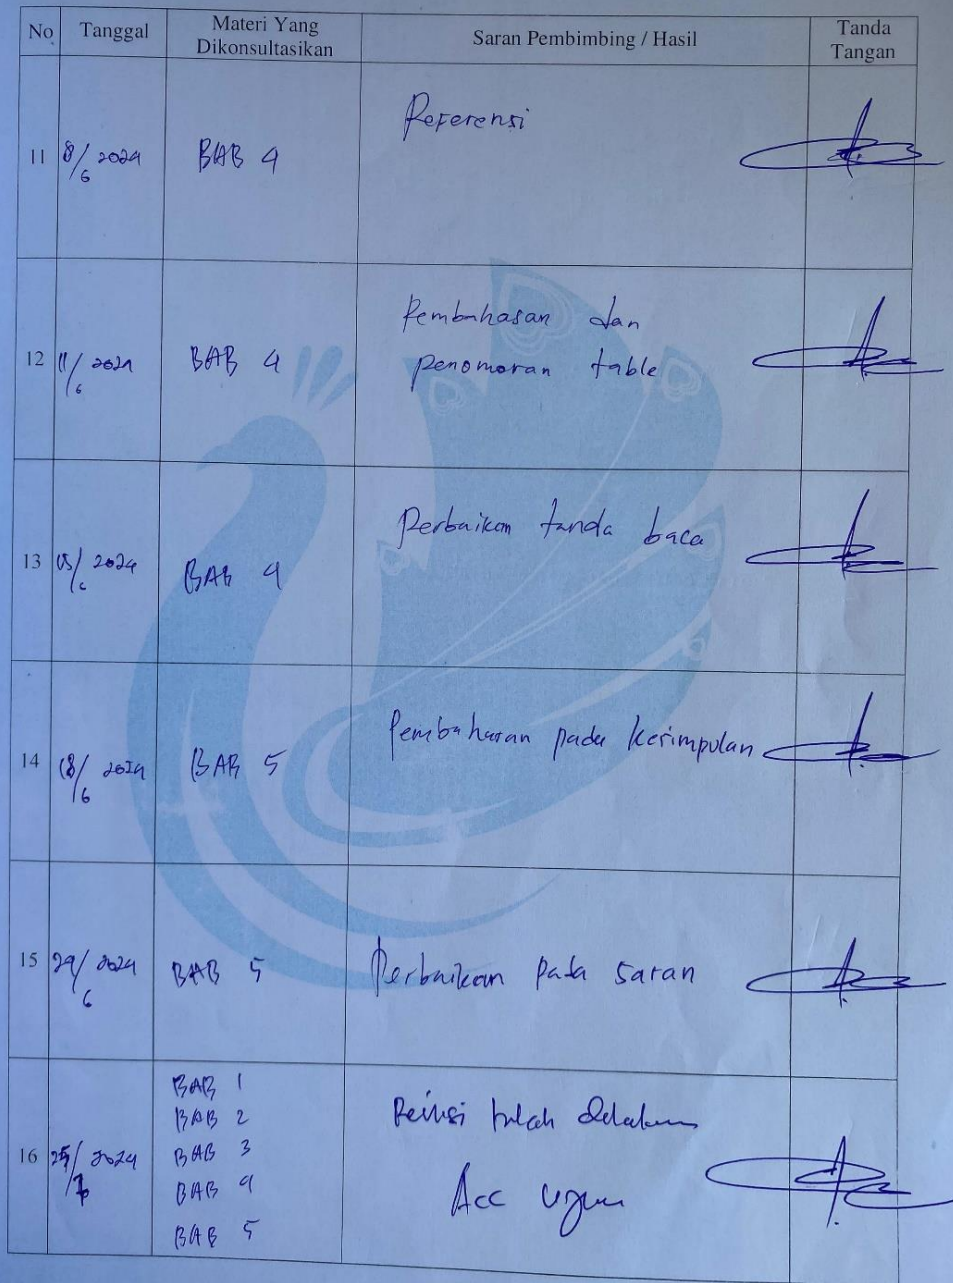 No Tanggal Materi Yang Dikonsultasikan Saran Pembimbing / Hasil Tanda Tangan
11 8/6 2024 BAB 4 Referensi
12 11/6 2024 BAB 4 Pembahasan dan
penomoran table
13 15/6 2024 BAB 4 Perbaikan tanda baca
14 18/6 2024 BAB 5 Pembahasan pada kesimpulan
15 29/6 2024 BAB 5 Perbaikan pada saran
BAB 1
BAB 2 Revisi telah dilakukan
16 2024 BAB 3
BAB 4 Acc ujian
BAB 5